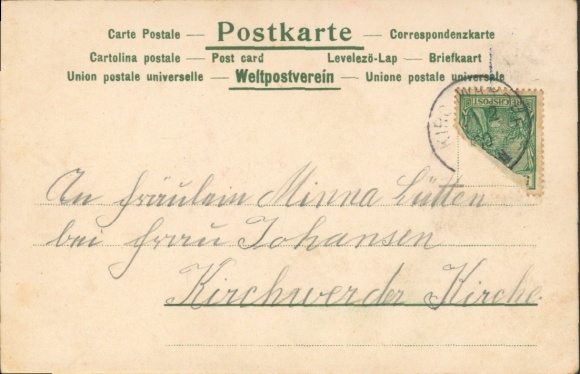 Carte Postale — Postkarte — Correspondenzkarte
Cartolina postale — Post card Levelezö-Lap — Briefkaart
Union postale universelle — Weltpostverein — Unione postale universale
REICHSPOST
An Fräulein Minna Lütten
bei Frau Johansen
Kirchwerder Kirche.